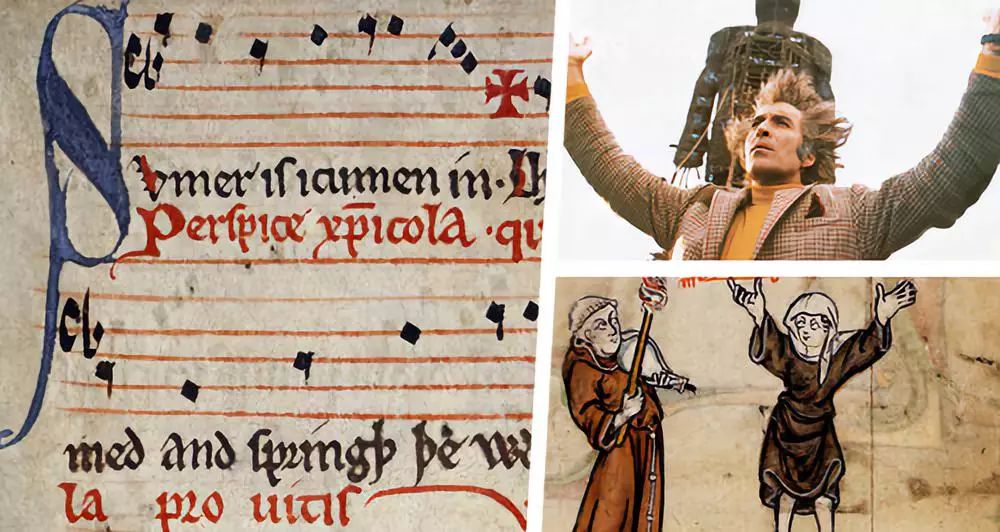 Svmer is icumen in·
Perspice xp̄icola ·qu
med and springþ þe w
la pro uitis